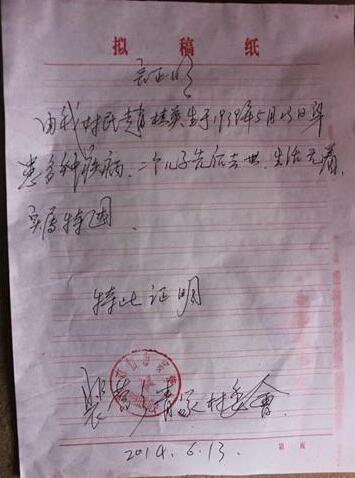 拟稿纸
证明
由我村民赵桂英生于1939年5月23日
患多种疾病、二个儿子先后去世、生活无着、
实属特困.
特此证明
村委会.
2014.6.13.
第 页